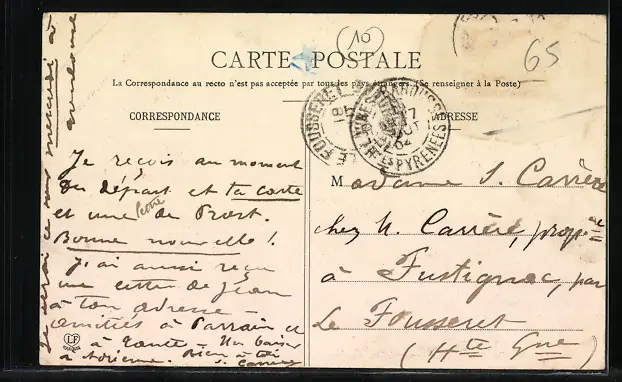 (10)
65
CARTE POSTALE
La Correspondance au recto n'est pas acceptée par tous les pays étrangers (Se renseigner à la Poste)
CORRESPONDANCE
ADRESSE
LE FOUSSERET
PYRENEES
17
04
Je reçois au moment
du départ et ta carte
et une lettre de Prost.
Bonne nouvelle !
J'ai aussi reçu
une lettre de Jean
à ton adresse -
amitiés à Parrain et
à Tante - Un baiser
à Adrienne. Bien à toi
S. Carrère
Je serai ce soir mercredi à
Toulouse
LF
Madame S. Carrère
chez M. Carrère, propre
à Fustignac, par
Le Fousseret
(Hte Gne)